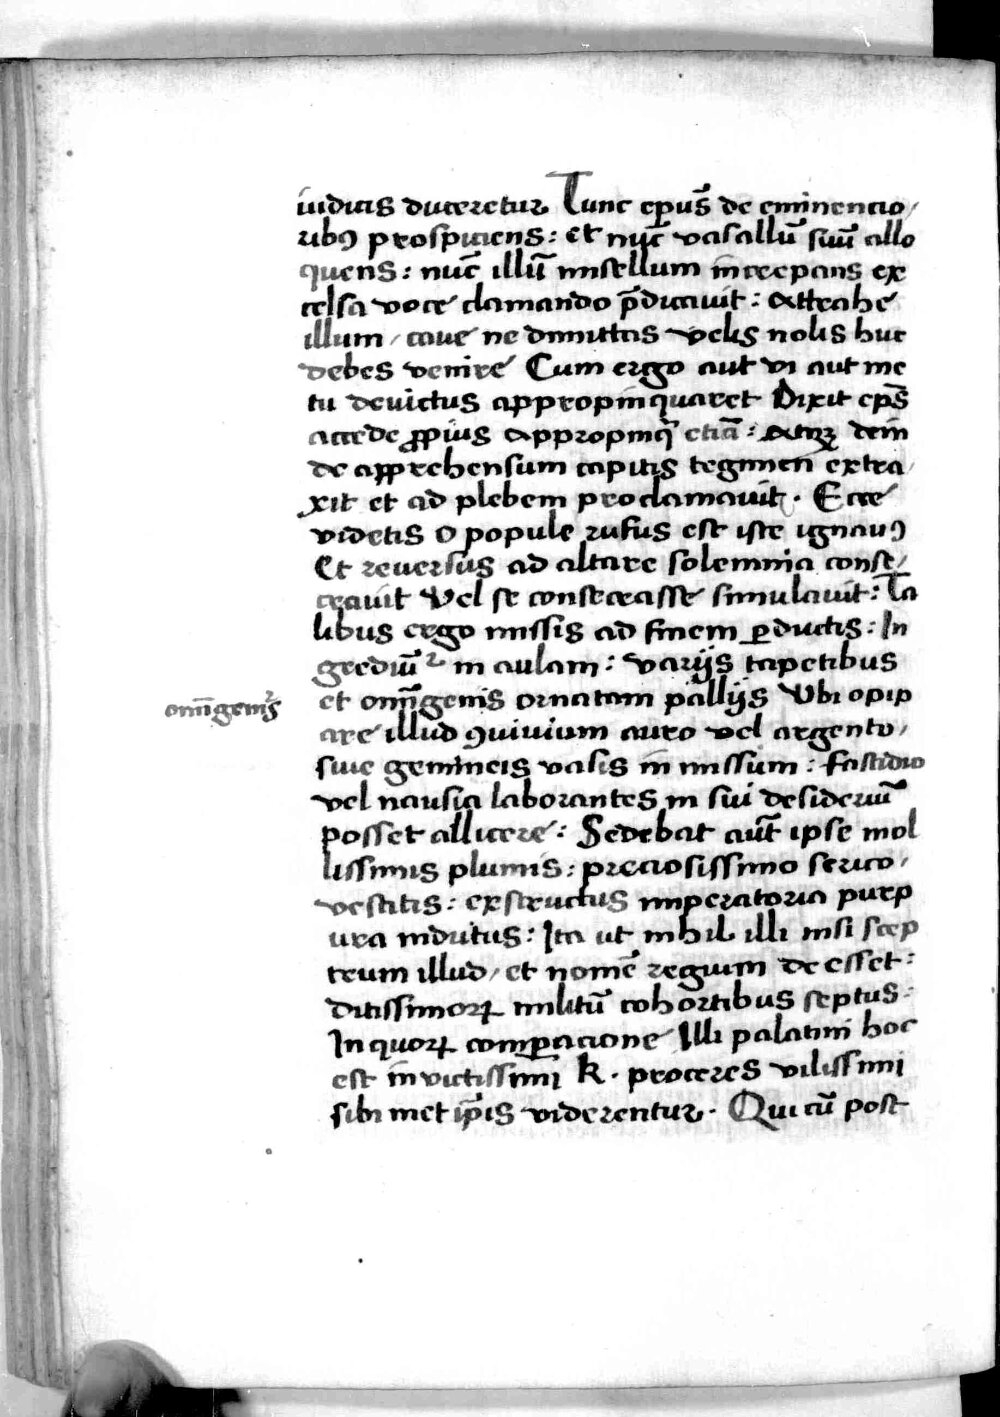 iudicis duceretur Tunc ep̄us̄ de eminencio/
ribꝰ prospiciens: et nūc vasallū suū allo
quens: nūc illū misellum increpans ex
celsa voce clamando p̄dicauit: Attrahe
illum / caue ne dimittas velis nolis huc
debes venire Cum ergo aut vi aut me
tu deuictus appropinquaret Dixit ep̄s
accede ꝓpius Appropinq̄ etiā: Atqꝫ dein
de apprehensum capitis tegimen extra/
xit et ad plebem proclamauit. Ecce
videtis o popule rufus est iste ignauꝰ
Et reuersus ad altare solemnia conse/
crauit Vel se consecrasse simulauit: Ta
libus ergo missis ad finem ꝑductis: In
grediūr in aulam: varijs tapetibus
omīgenis
et omīgenis ornatam pallijs Vbi opip
are illud ꝯuiuium auro vel argento/
siue gemmeis vasis in missum: fastidio
vel nausia laborantes in sui desideriū
posset allicere: Sedebat aūt ipse mol
lissimis plumis: preciosissimo serico/
vestitis: exstructus imperatoria purp
ura indutus: Ita ut nihil illi nisi scep
trum illud / et nomē regium de esset:
ditissimoꝝ militū cohortibus septus:
In quoꝝ comꝑacione Illi palatini hoc
est inuictissimi K. proceres vilissimi
sibi met ip̄is viderentur. Qui cū post